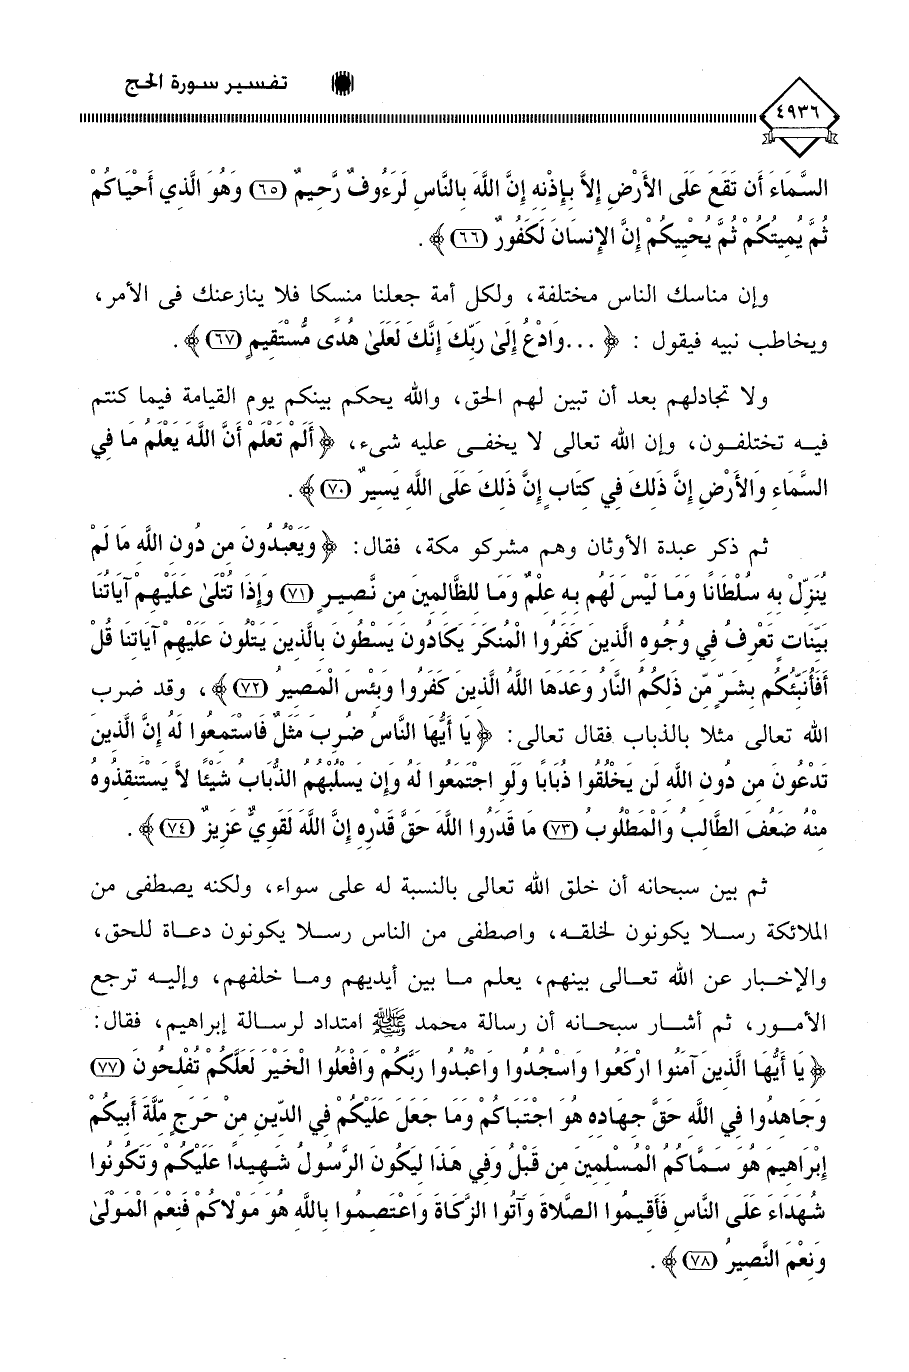 تفسير سورة الحج
٤٩٣٦
السَّمَاءَ أَن تَقَعَ عَلَى الأَرْضِ إِلاَّ بِإِذْنِهِ إِنَّ اللَّهَ بِالنَّاسِ لَرَءُوفٌ رَّحِيمٌ (٦٥) وَهُوَ الَّذِي أَحْيَاكُمْ
ثُمَّ يُمِيتُكُمْ ثُمَّ يُحْيِيكُمْ إِنَّ الإِنسَانَ لَكَفُورٌ (٦٦) ﴾ .
وإن مناسك الناس مختلفة، ولكل أمة جعلنا منسكا فلا ينازعنك فى الأمر،
ويخاطب نبيه فيقول : ﴿ ...وَادْعُ إِلَىٰ رَبِّكَ إِنَّكَ لَعَلَىٰ هُدًى مُّسْتَقِيمٍ (٦٧) ﴾ .
ولا تجادلهم بعد أن تبين لهم الحق، والله يحكم بينكم يوم القيامة فيما كنتم
فيه تختلفون، وإن الله تعالى لا يخفى عليه شىء، ﴿ أَلَمْ تَعْلَمْ أَنَّ اللَّهَ يَعْلَمُ مَا فِي
السَّمَاءِ وَالأَرْضِ إِنَّ ذَلِكَ فِي كِتَابٍ إِنَّ ذَلِكَ عَلَى اللَّهِ يَسِيرٌ (٧٠) ﴾ .
ثم ذكر عبدة الأوثان وهم مشركو مكة، فقال: ﴿ وَيَعْبُدُونَ مِن دُونِ اللَّهِ مَا لَمْ
يُنَزِّلْ بِهِ سُلْطَانًا وَمَا لَيْسَ لَهُم بِهِ عِلْمٌ وَمَا لِلظَّالِمِينَ مِن نَّصِيرٍ (٧١) وَإِذَا تُتْلَىٰ عَلَيْهِمْ آيَاتُنَا
بَيِّنَاتٍ تَعْرِفُ فِي وُجُوهِ الَّذِينَ كَفَرُوا الْمُنكَرَ يَكَادُونَ يَسْطُونَ بِالَّذِينَ يَتْلُونَ عَلَيْهِمْ آيَاتِنَا قُلْ
أَفَأُنَبِّئُكُم بِشَرٍّ مِّن ذَلِكُمُ النَّارُ وَعَدَهَا اللَّهُ الَّذِينَ كَفَرُوا وَبِئْسَ الْمَصِيرُ (٧٢) ﴾، وقد ضرب
الله تعالى مثلا بالذباب فقال تعالى: ﴿ يَا أَيُّهَا النَّاسُ ضُرِبَ مَثَلٌ فَاسْتَمِعُوا لَهُ إِنَّ الَّذِينَ
تَدْعُونَ مِن دُونِ اللَّهِ لَن يَخْلُقُوا ذُبَابًا وَلَوِ اجْتَمَعُوا لَهُ وَإِن يَسْلُبْهُمُ الذُّبَابُ شَيْئًا لاَّ يَسْتَنقِذُوهُ
مِنْهُ ضَعُفَ الطَّالِبُ وَالْمَطْلُوبُ (٧٣) مَا قَدَرُوا اللَّهَ حَقَّ قَدْرِهِ إِنَّ اللَّهَ لَقَوِيٌّ عَزِيزٌ (٧٤) ﴾ .
ثم بين سبحانه أن خلق الله تعالى بالنسبة له على سواء، ولكنه يصطفى من
الملائكة رسلا يكونون لخلقه، واصطفى من الناس رسلا يكونون دعاة للحق،
والإخبار عن الله تعالى بينهم، يعلم ما بين أيديهم وما خلفهم، وإليه ترجع
الأمور، ثم أشار سبحانه أن رسالة محمد ﷺ امتداد لرسالة إبراهيم، فقال:
﴿ يَا أَيُّهَا الَّذِينَ آمَنُوا ارْكَعُوا وَاسْجُدُوا وَاعْبُدُوا رَبَّكُمْ وَافْعَلُوا الْخَيْرَ لَعَلَّكُمْ تُفْلِحُونَ (٧٧)
وَجَاهِدُوا فِي اللَّهِ حَقَّ جِهَادِهِ هُوَ اجْتَبَاكُمْ وَمَا جَعَلَ عَلَيْكُمْ فِي الدِّينِ مِنْ حَرَجٍ مِّلَّةَ أَبِيكُمْ
إِبْرَاهِيمَ هُوَ سَمَّاكُمُ الْمُسْلِمِينَ مِن قَبْلُ وَفِي هَذَا لِيَكُونَ الرَّسُولُ شَهِيدًا عَلَيْكُمْ وَتَكُونُوا
شُهَدَاءَ عَلَى النَّاسِ فَأَقِيمُوا الصَّلاةَ وَآتُوا الزَّكَاةَ وَاعْتَصِمُوا بِاللَّهِ هُوَ مَوْلاكُمْ فَنِعْمَ الْمَوْلَىٰ
وَنِعْمَ النَّصِيرُ (٧٨) ﴾ .